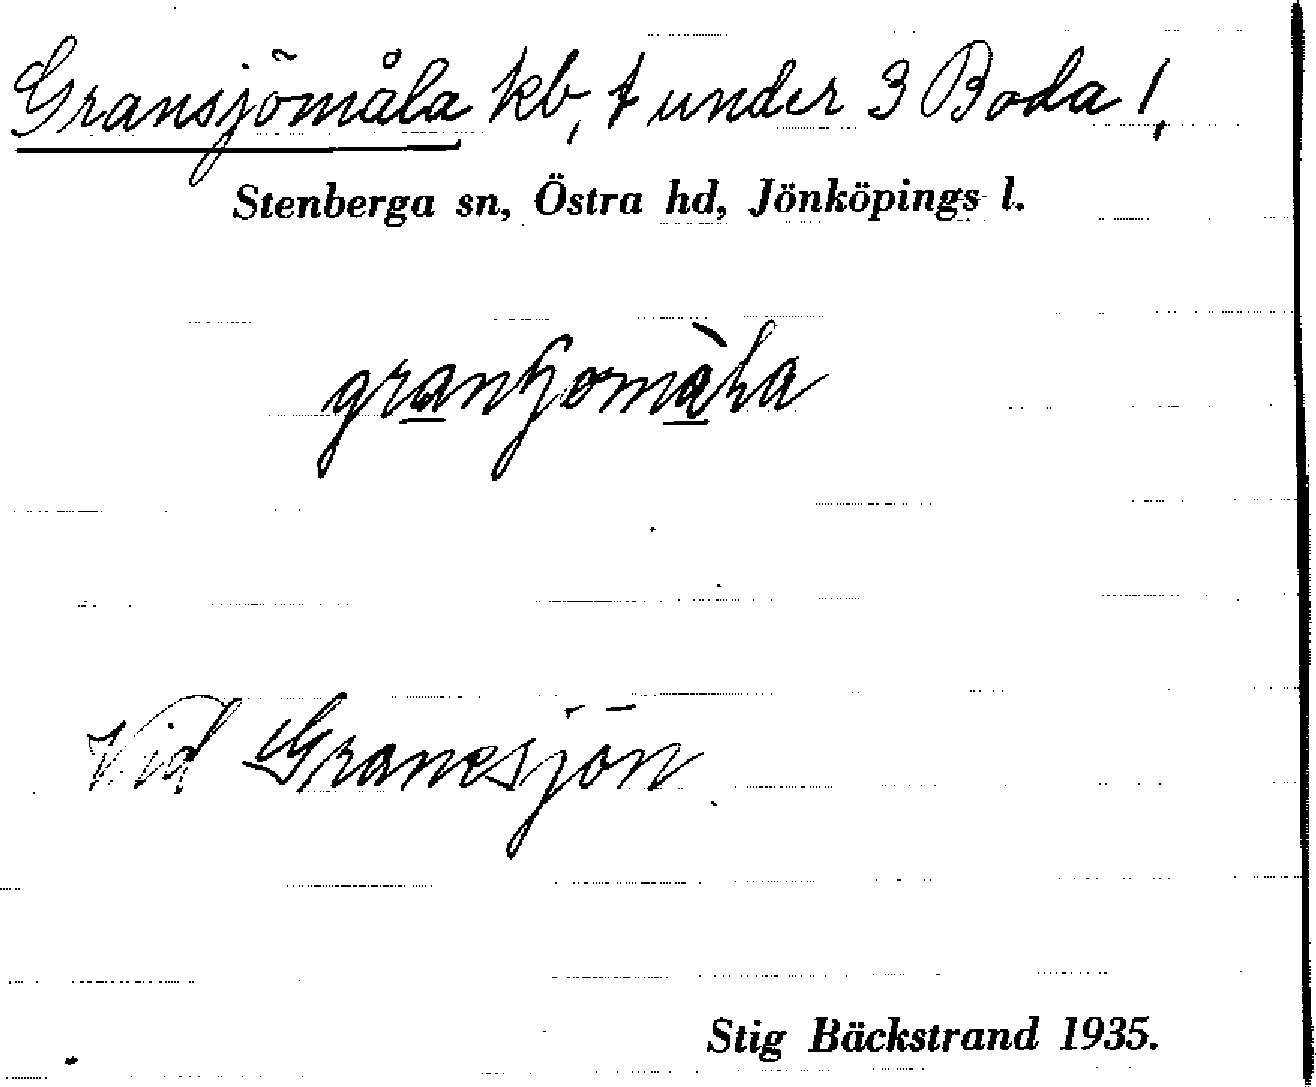 Gransjömåla kb, t under 3 Boda 1,
Stenberga sn, Östra hd, Jönköpings l.
Vid Granesjön
Stig Bäckstrand 1935.